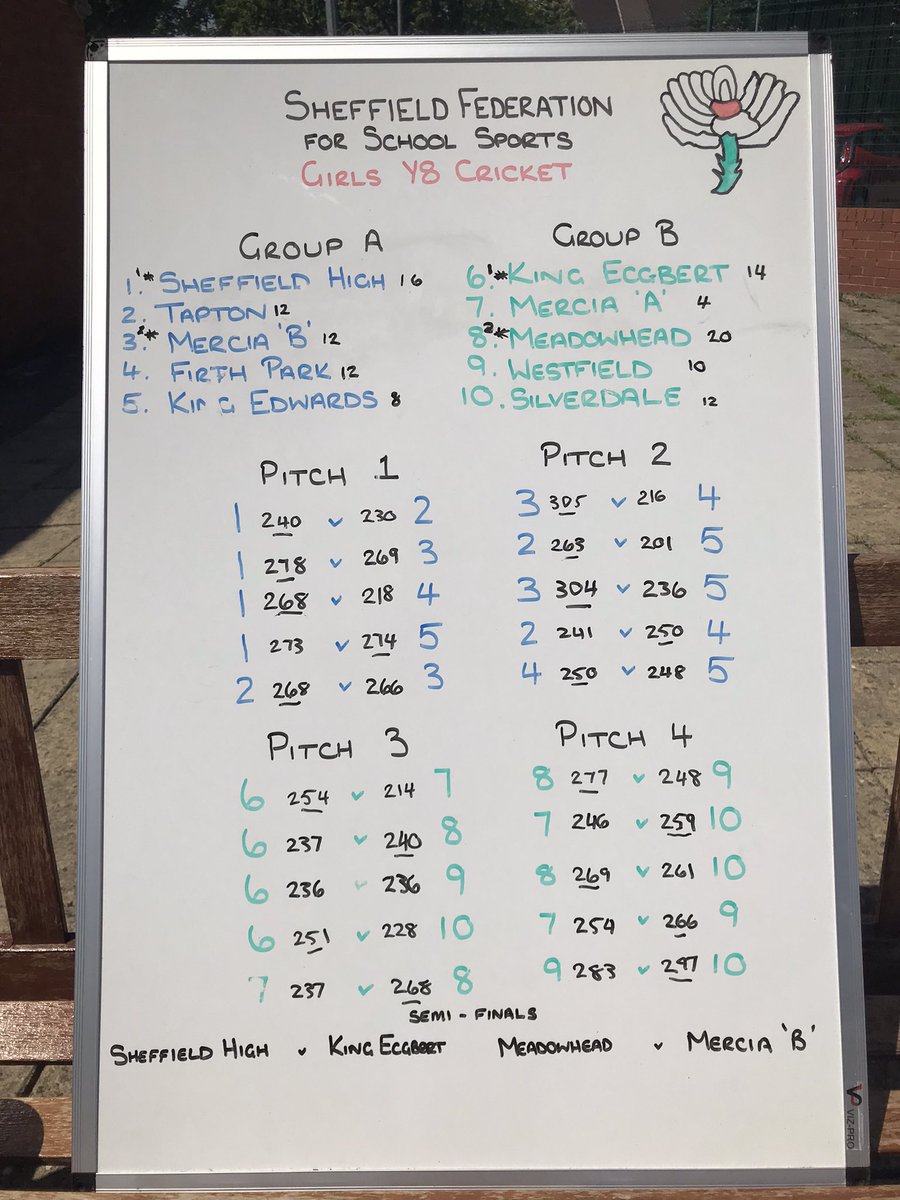 SHEFFIELD FEDERATION
FOR SCHOOL SPORTS
GIRLS Y8 CRICKET
GROUP A
1.¹* SHEFFIELD HIGH 16
2. TAPTON 12
3.²* MERCIA 'B' 12
4. FIRTH PARK 12
5. KING EDWARDS 8
GROUP B
6.¹* KING ECGBERT 14
7. MERCIA 'A' 4
8.²* MEADOWHEAD 20
9. WESTFIELD 10
10. SILVERDALE 12
PITCH 1
1 240 v 230 2
1 278 v 269 3
1 268 v 218 4
1 273 v 274 5
2 268 v 266 3
PITCH 2
3 305 v 216 4
2 263 v 201 5
3 304 v 236 5
2 241 v 250 4
4 250 v 248 5
PITCH 3
6 254 v 214 7
6 237 v 240 8
6 236 v 236 9
6 251 v 228 10
7 237 v 268 8
PITCH 4
8 277 v 248 9
7 246 v 259 10
8 269 v 261 10
7 254 v 266 9
9 283 v 297 10
SEMI - FINALS
SHEFFIELD HIGH v KING ECGBERT MEADOWHEAD v MERCIA 'B'
VIZ-PRO